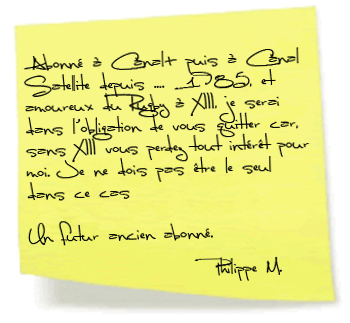 Abonné à Canal+ puis à Canal
Satellite depuis .... 1985, et
amoureux du Rugby à XIII, je serai
dans l'obligation de vous quitter car,
sans XIII vous perdez tout intérêt pour
moi. Je ne dois pas être le seul
dans ce cas
Un futur ancien abonné.
Philippe M.